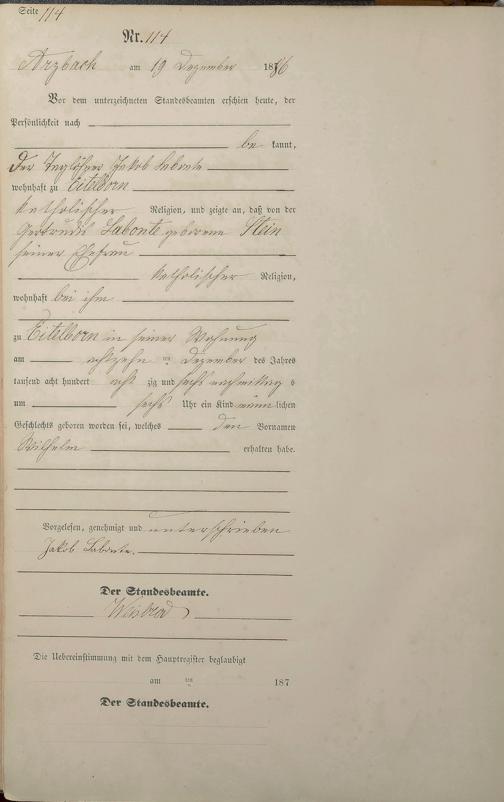 Seite 114
Nr. 114
Arzbach am 19 Dezember 1886
Vor dem unterzeichneten Standesbeamten erschien heute, der
Persönlichkeit nach
be kannt,
der Taglöhner Jakob Labonte
wohnhaft zu Eitelborn
katholischer Religion, und zeigte an, daß von der
Gertrude Labonte geborene Stein
seiner Ehefrau
katholischer Religion,
wohnhaft bei ihm
zu Eitelborn in seiner Wohnung
am achtzehn ten Dezember des Jahres
tausend acht hundert acht zig und sechs nachmittag s
um sechs Uhr ein Kind männ lichen
Geschlechts geboren worden sei, welches den Vornamen
Wilhelm erhalten habe.
Vorgelesen, genehmigt und unterschrieben
Jakob Labonte.
Der Standesbeamte.
Die Uebereinstimmung mit dem Hauptregister beglaubigt
am ten 187
Der Standesbeamte.